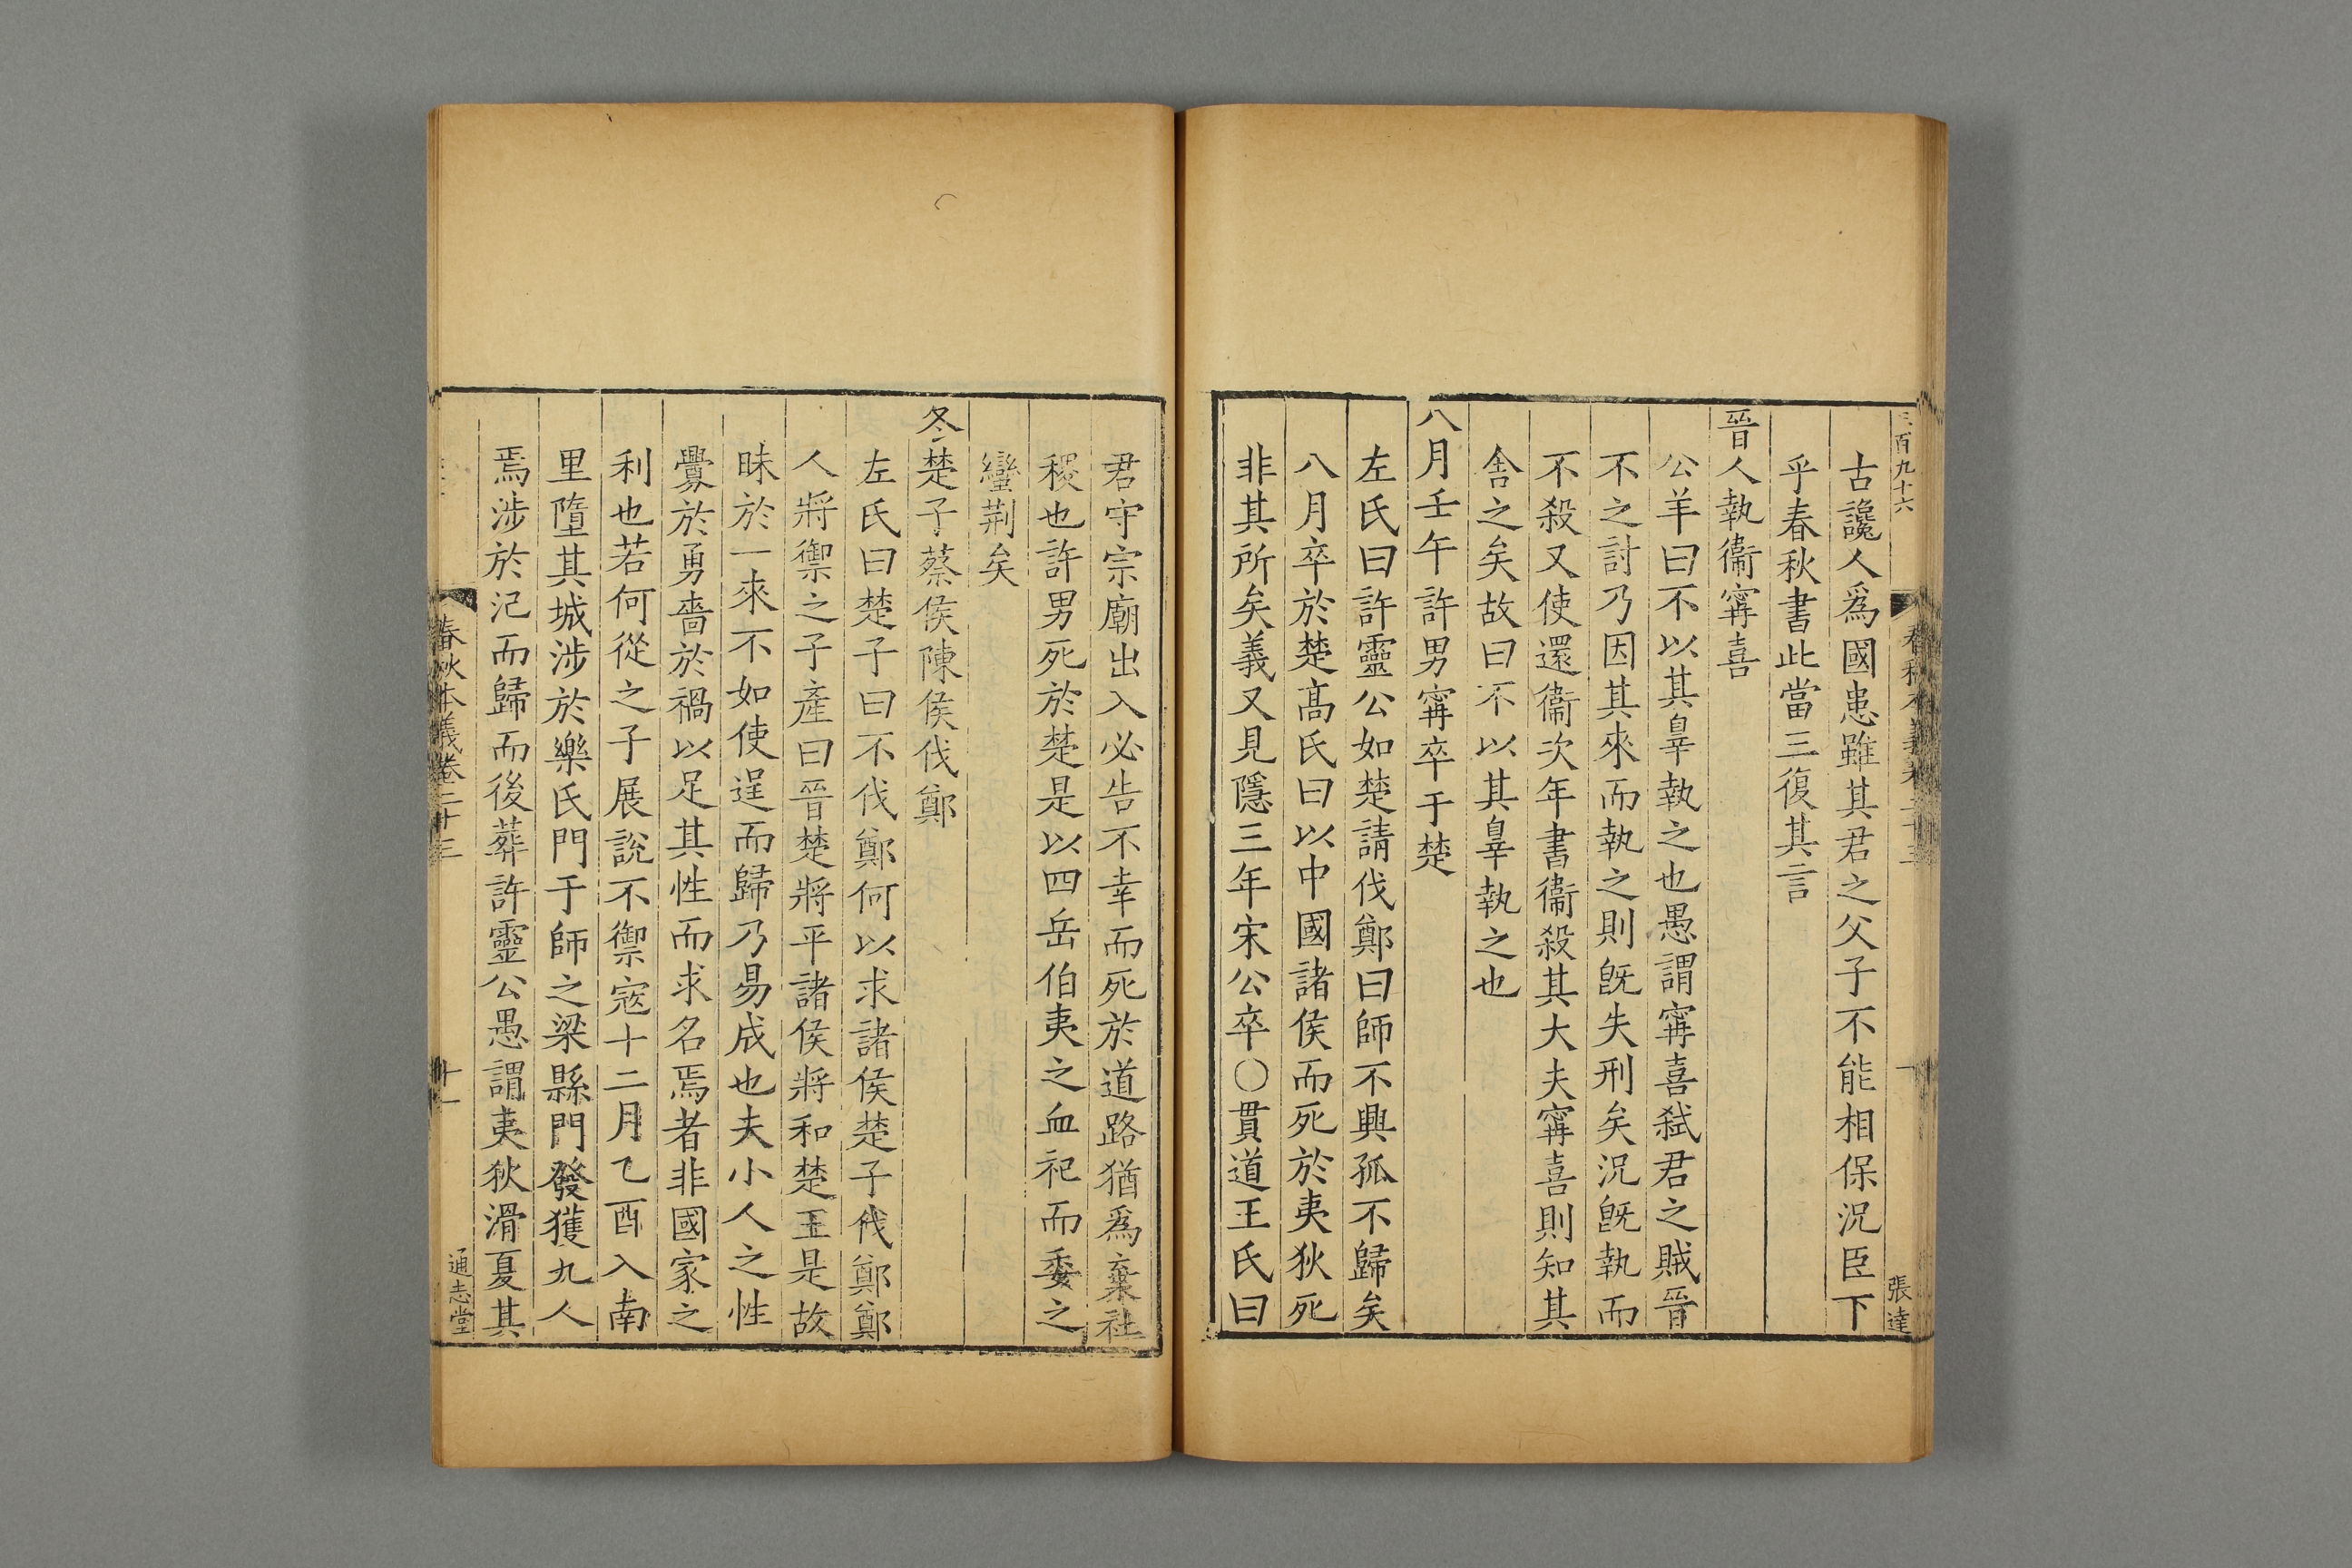 三百九十六
張達
古讒人爲國患雖其君之父子不能相保況臣下
乎春秋書此當三復其言
晉人執衞甯喜
公羊曰不以其辠執之也愚謂甯喜弑君之賊晉
不之討乃因其來而執之則旣失刑矣況旣執而
不殺又使還衞次年書衞殺其大夫甯喜則知其
舍之矣故曰不以其辠執之也
八月壬午許男甯卒于楚
左氏曰許靈公如楚請伐鄭曰師不興孤不歸矣
八月卒於楚髙氏曰以中國諸侯而死於夷狄死
非其所矣義又見隱三年宋公卒○貫道王氏曰
君守宗廟出入必告不幸而死於道路猶爲棄社
稷也許男死於楚是以四岳伯夷之血祀而委之
蠻荆矣
冬楚子蔡侯陳侯伐鄭
左氏曰楚子曰不伐鄭何以求諸侯楚子伐鄭鄭
人將禦之子產曰晉楚將平諸侯將和楚王是故
昧於一來不如使逞而歸乃易成也夫小人之性
釁於勇嗇於禍以足其性而求名焉者非國家之
利也若何從之子展說不禦寇十二月乙酉入南
里墮其城涉於樂氏門于師之梁縣門發獲九人
焉涉於氾而歸而後葬許靈公愚謂夷狄滑夏其
春秋本義卷二十三
十一
通志堂